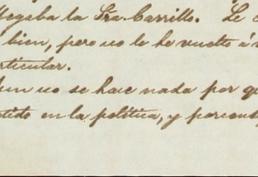 llegaba la Sra. Carrillo. Le
bien, pero no le he vuelto á
rticular.
un no se hace nada por
tido en la política, y por